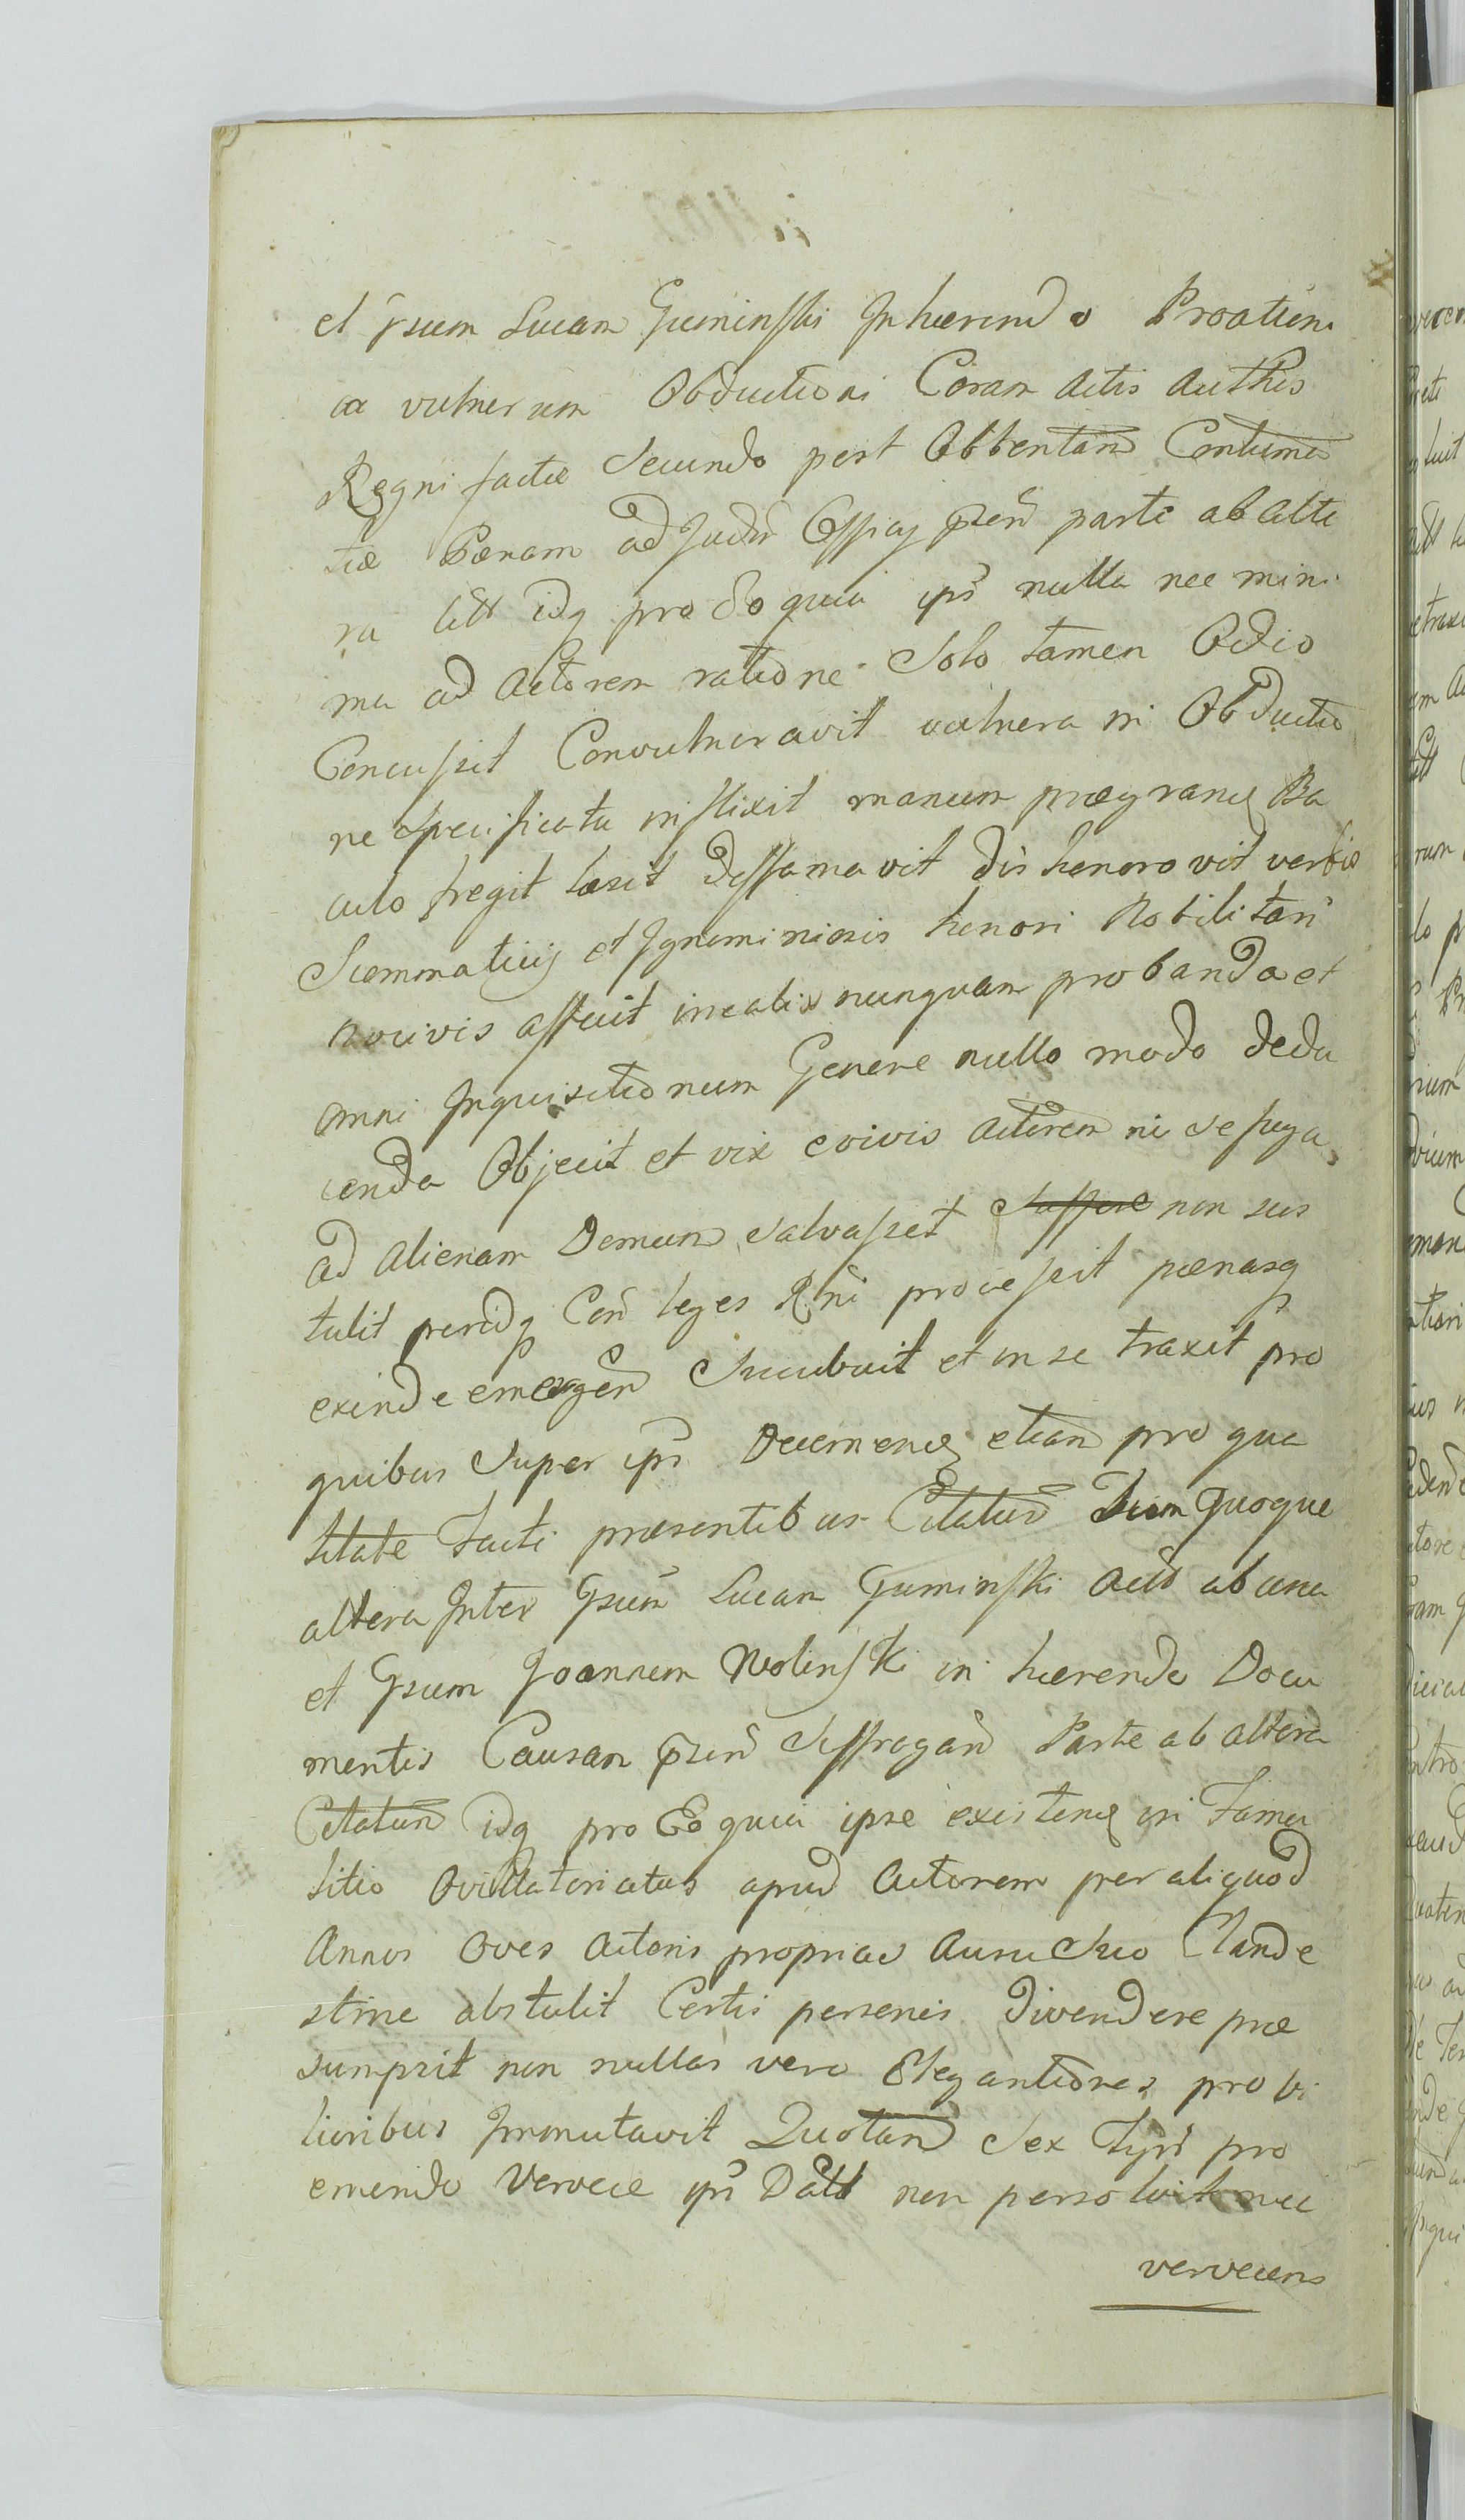 et Gsum Lucam Guminski Inhaerendo Proationi
ac vulnerum Obductioni Coram Actis Authis
Regni factae Secundo post Obtentam Contuma
tiae Poenam ad Judm Offij psen parte ab alte
ra Citt idq pro Eo quia ips nulla nec mini
ma ad Actorem ratione Solo tamen Odio
Concussit Convulneravit vulnera in Obductio
ne Specificata inflixit manum praegrandi Ba
culo fregit laesit Deffamavit dishonoravit verbis
Scommaticis et Ignominiosis honori Nobilitari
nocivis affecit inealis nunquam probanda et
omni Inquisitionum Genere nullo modo dedu
cenda Objecit et vix evivis Actorem ni se fuga
ad Alienam Domum salvasset non sus
tulit peridq Con leges Rni processit paenasq
exinde emergen Succubuit et in se traxit pro
quibus Super ips Decernend etiam pro qua
litate Facti praesentibus Citatum Tum Quoque
altera Inter Gsum Lucam Guminski Act ab una
et Gsum Joannem Wolinski in haerendo Docu
mentis Causam psen Suffragan Parte ab altera
Citatum idq pro Eo quia ipse existens in Famu
litio Ovillatoriatus apud Actorem per aliquod
Annos Oves Actoris proprias Ausu Suo Clande
stine abstulit Certis personis divendere prae
sumpsit non nullas vero Elegantiores pro vi
lioribus Immutavit Quotan Sex Tynf pro
emendo Vervece ips Datt non persolvit nec
vervecem